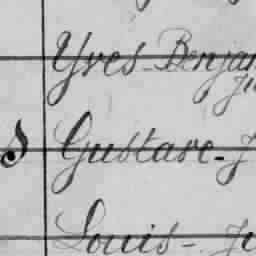 Yves - Benjam
Ju
s Gustave - J
Louis - Ju